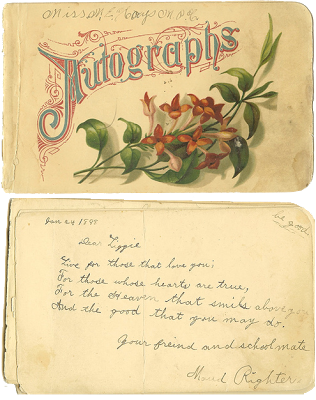 Miss M. E.
Autographs
Jan 24 1898
Dear Lizzie
Live for those that love you;
For those whose hearts are true,
For the Heaven that smiles above you
And the good that you may do.
Your freind and schoolmate
Maud Righter.